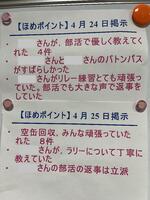 【ほめポイント】４月２４日掲示
・　　さんが、部活で優しく教えてくれた　４件
・　　さんと　　さんのバトンパスがすばらしかった
・　　さんがリレー練習とても頑張っていた。部活でも大きな声で返事をしていた
【ほめポイント】４月２５日掲示
・空缶回収、みんな頑張っていたれた　８件
・　　さんが、ラリーについて丁寧に教えていた
・　　さんの部活の返事は立派